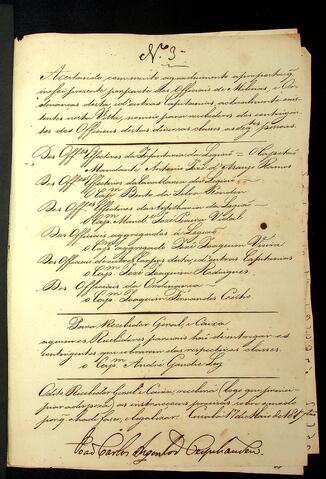 N.º 3
Aceitando, com muito agradecimento a proposta q
me foi presente por parte dos Officiaes de Milicias, e Or
denanças desta, e d'outras Capitanias, actualmente exis
tentes nesta Villa, nomeio para recebedores dos contingen
tes dos Officiaes destas diversas classes as seg.
Dos Off.es Effectivos da Infantaria da Legião = O Capitão
Mandante Antonio José d'Araujo Ramos
Dos Off.es Effectivos da Cavallaria da Legião
o Cap.m Bento da
Dos Off.es Effectivos da Artilharia da Legião
o Cap.m Mand. José Pereira Vidal
Dos Officiaes aggregados á Legião
o Cap.m aggregado José Joaquim Vieira
Dos Officiaes de outros Corpos desta, e d'outras Capitanias
o Cap.m José Joaquim Rodrigues
Dos Officiaes da Ordenança
o Cap.m Joaquim Fernandes Castro
Para Recebedor Geral, e Caixa
a quem os Recebedores parciaes hão de entregar os
contingentes que cobrarem das respectivas classes.
o Cap.m André Gaudie Ley
O dito Recebedor Geral e Caixa, receberá
por
pong. Cuiabá 17 de Maio de
João Carlos Augusto d'Oeynhausen